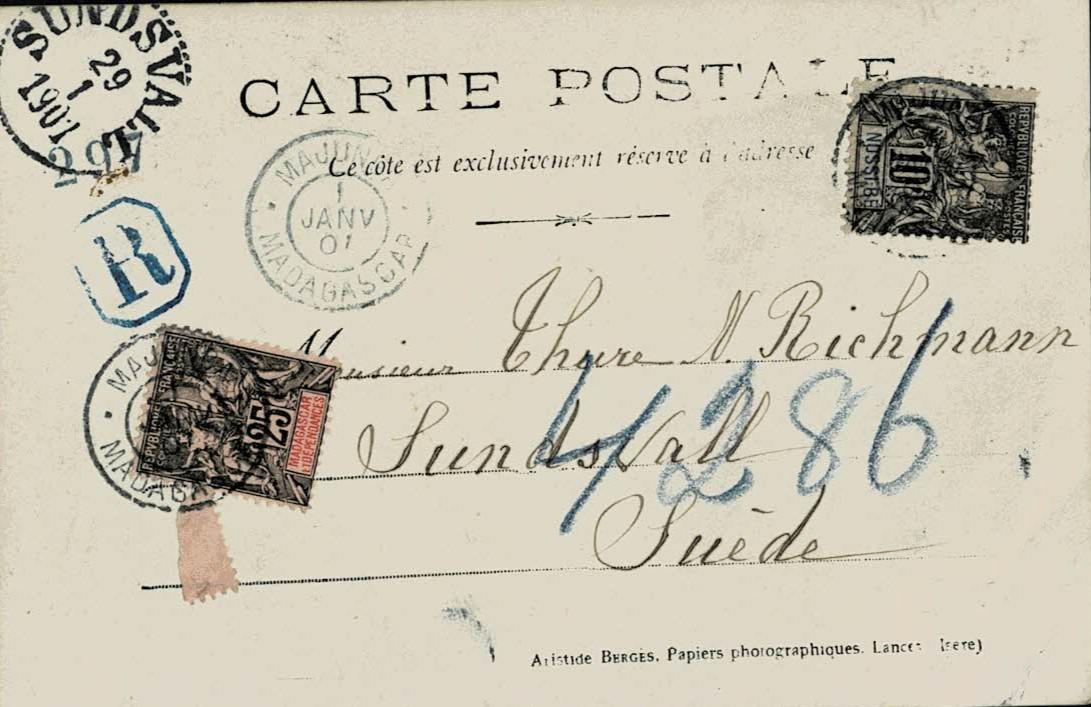 SUNDSVALL
29
1
1901
CARTE POSTALE
Ce côte est exclusivement réservé à l'adresse
MAJUNGA
1
JANV
01
MADAGASCAR
REPUBLIQUE FRANÇAISE
COLONIES
POSTES
NOSSI-BÉ
10
R
Monsieur Thure N. Richmann
Sundsvall
Suède
4286
MAJUNGA
MADAGASCAR
REPUBLIQUE FRANÇAISE
25
MADAGASCAR
ET DÉPENDANCES
Aristide BERGÈS, Papiers photographiques. Lancey (Isère)